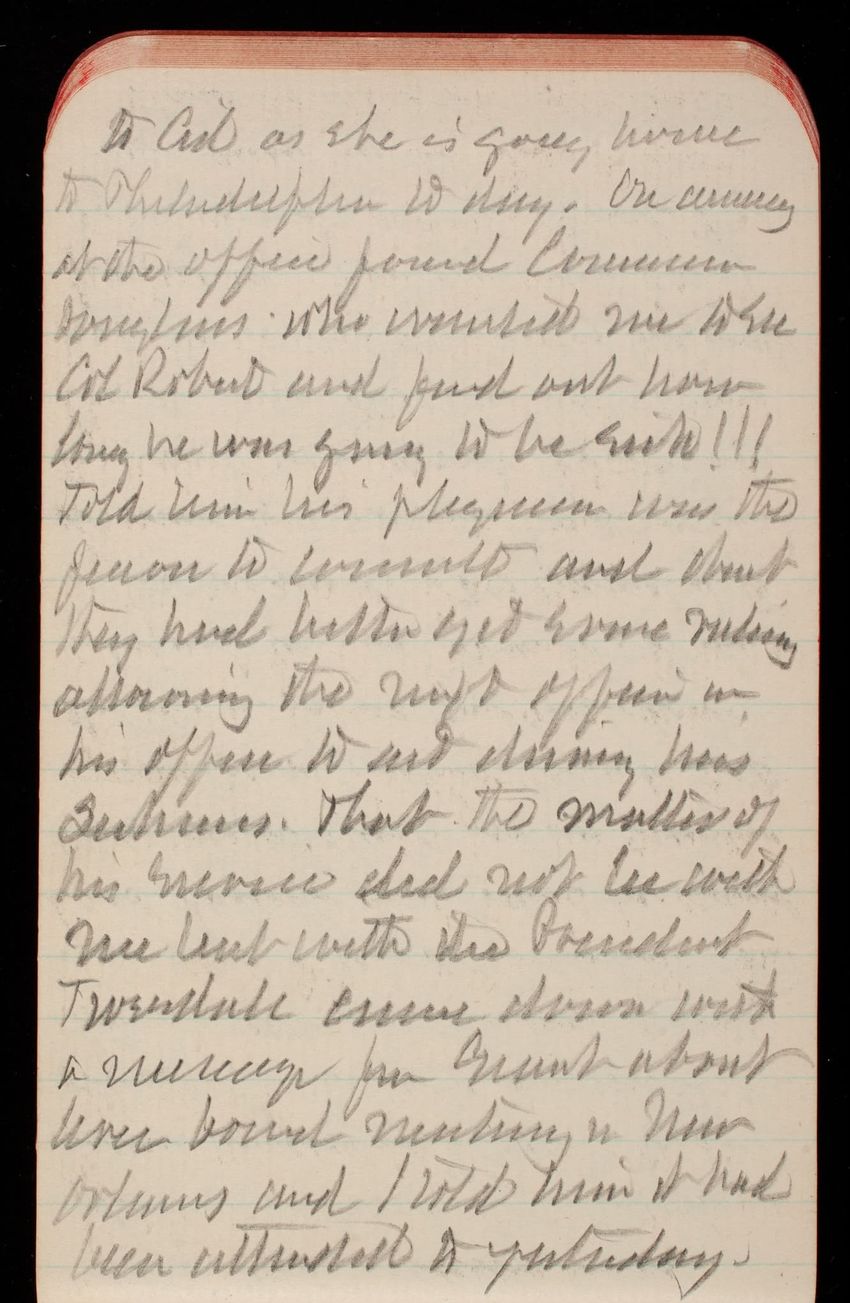 to Cid as she is going home
to Philadelphia to day. On arriving
at the office found Commissioner
Douglass who wanted me to see
Col Robert and find out how
long he was going to be sick!!!
Told him his physician was the
person to consult and that
they had better get some ruling
allowing the next officer in
his office to act during his
Sickness. That the matter of
his service did not lie with
me but with the President
Tweedale came down with
a message from Grant about
levee board meeting in New
Orleans and I told him it had
been attended to yesterday.